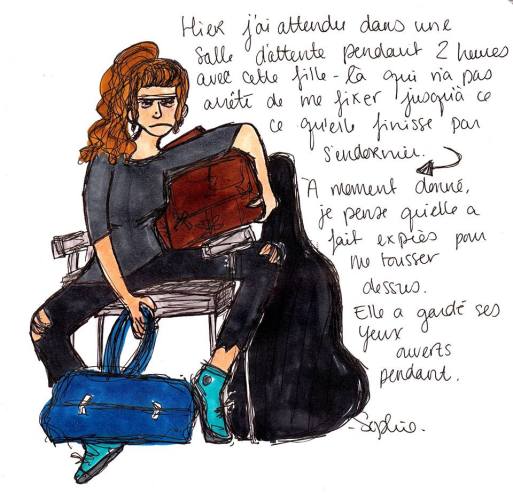 Hier j'ai attendu dans une
salle d'attente pendant 2 heures
avec cette fille-là qui n'a pas
arrêté de me fixer jusqu'à ce
ce qu'elle finisse par
s'endormir.
À moment donné,
je pense qu'elle a
fait exprès pour
me tousser
dessus.
Elle a gardé ses
yeux
ouverts
pendant.
-Sophie-